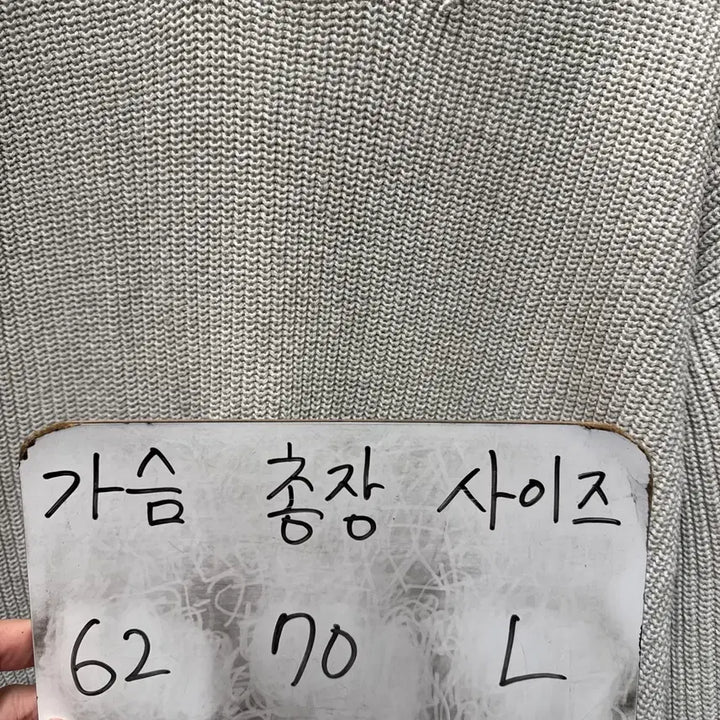 가슴 총장 사이즈
62 70 L